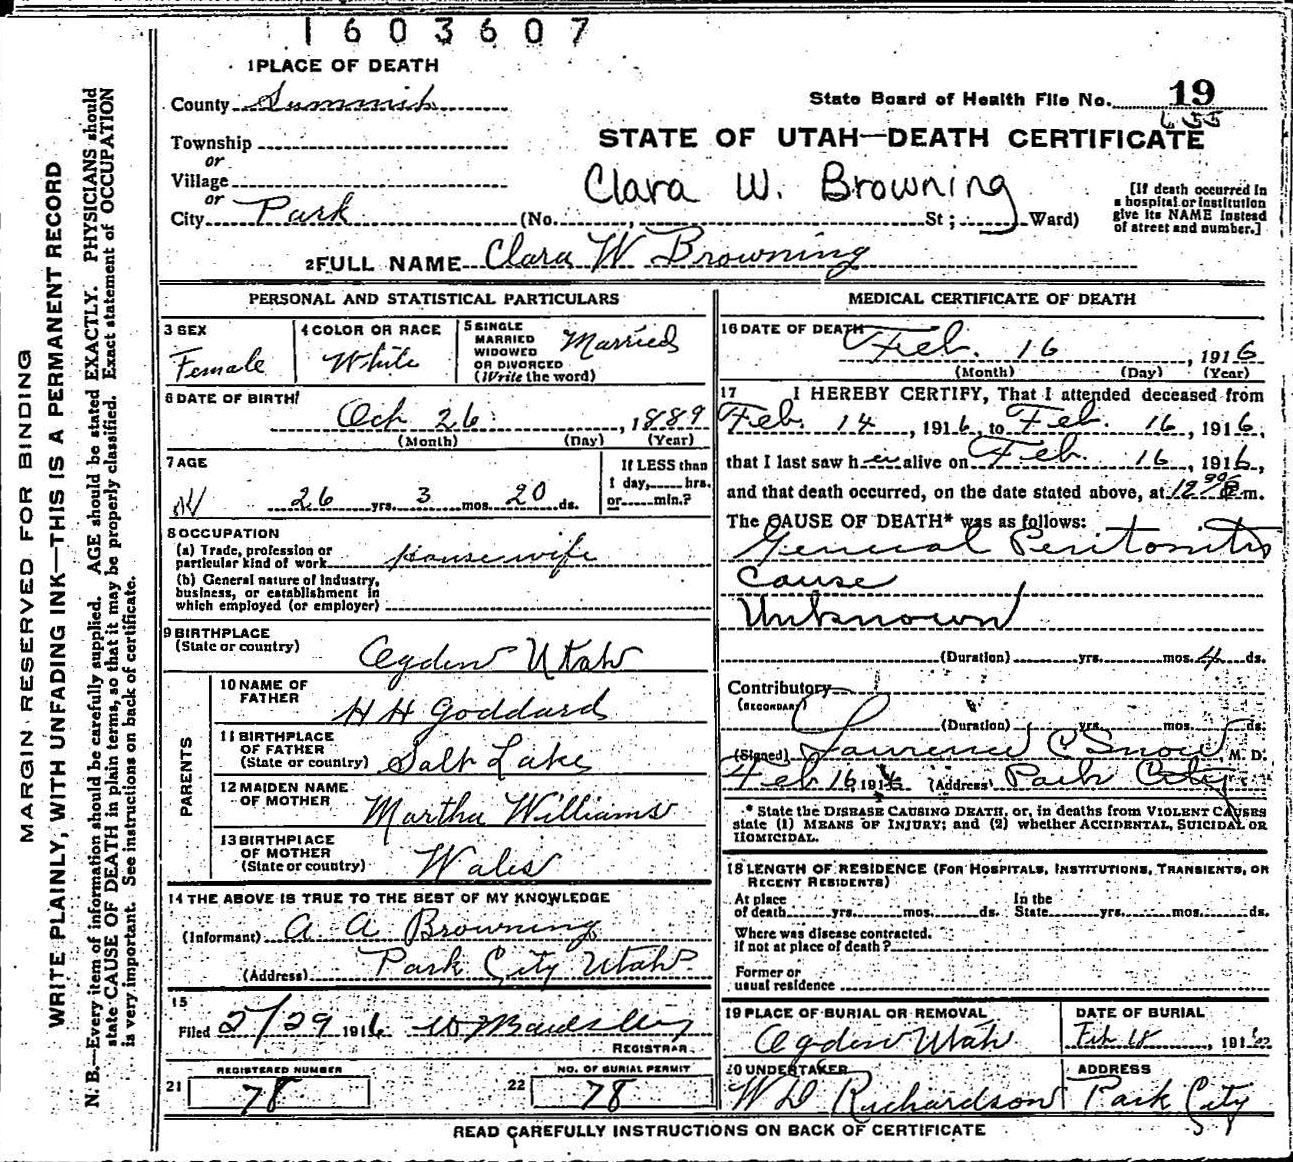 1603607
1 PLACE OF DEATH
County Summit
State Board of Health File No. 19
Township
STATE OF UTAH—DEATH CERTIFICATE
or
Village
Clara W. Browning
or
City Park (No. , St; Ward)
[If death occurred in
a hospital or institution
give its NAME instead
of street and number.]
2 FULL NAME Clara W Browning
PERSONAL AND STATISTICAL PARTICULARS
3 SEX
Female
4 COLOR OR RACE
White
5 SINGLE
MARRIED
WIDOWED
OR DIVORCED
(Write the word)
Married
6 DATE OF BIRTH
Oct 26, 1889
(Month) (Day) (Year)
7 AGE
26 yrs. 3 mos. 20 ds.
If LESS than
1 day, hrs.
or min.?
8 OCCUPATION
(a) Trade, profession or
particular kind of work housewife
(b) General nature of industry,
business, or establishment in
which employed (or employer)
9 BIRTHPLACE
(State or country) Ogden Utah
PARENTS
10 NAME OF
FATHER H H Goddard
11 BIRTHPLACE
OF FATHER
(State or country) Salt Lake
12 MAIDEN NAME
OF MOTHER Martha Williams
13 BIRTHPLACE
OF MOTHER
(State or country) Wales
14 THE ABOVE IS TRUE TO THE BEST OF MY KNOWLEDGE
(Informant) A A Browning
(Address) Park City Utah
15
Filed 2/29 1916
REGISTRAR
REGISTERED NUMBER
21 78
NO. OF BURIAL PERMIT
22 78
MEDICAL CERTIFICATE OF DEATH
16 DATE OF DEATH
Feb. 16, 1916
(Month) (Day) (Year)
17 I HEREBY CERTIFY, That I attended deceased from
Feb. 14, 1916, to Feb. 16, 1916,
that I last saw her alive on Feb. 16, 1916,
and that death occurred, on the date stated above, at m.
The CAUSE OF DEATH* was as follows:
General Peritonitis
Cause
Unknown
(Duration) yrs. mos. 4 ds.
Contributory
(SECONDARY)
(Duration) yrs. mos. ds.
(Signed) Lawrence C Snow M. D.
Feb 16, 1916 (Address) Park City
* State the DISEASE CAUSING DEATH, or, in deaths from VIOLENT CAUSES
state (1) MEANS OF INJURY; and (2) whether ACCIDENTAL, SUICIDAL OR
HOMICIDAL.
18 LENGTH OF RESIDENCE (FOR HOSPITALS, INSTITUTIONS, TRANSIENTS, OR
RECENT RESIDENTS)
At place In the
of death yrs. mos. ds. State yrs. mos. ds.
Where was disease contracted.
if not at place of death?
Former or
usual residence
19 PLACE OF BURIAL OR REMOVAL
Ogden Utah
DATE OF BURIAL
Feb 18, 191
20 UNDERTAKER
W D Richardson
ADDRESS
Park City
READ CAREFULLY INSTRUCTIONS ON BACK OF CERTIFICATE
MARGIN RESERVED FOR BINDING
WRITE PLAINLY, WITH UNFADING INK—THIS IS A PERMANENT RECORD
N. B.—Every item of information should be carefully supplied. AGE should be stated EXACTLY. PHYSICIANS should
state CAUSE OF DEATH in plain terms, so that it may be properly classified. Exact statement of OCCUPATION
is very important. See instructions on back of certificate.